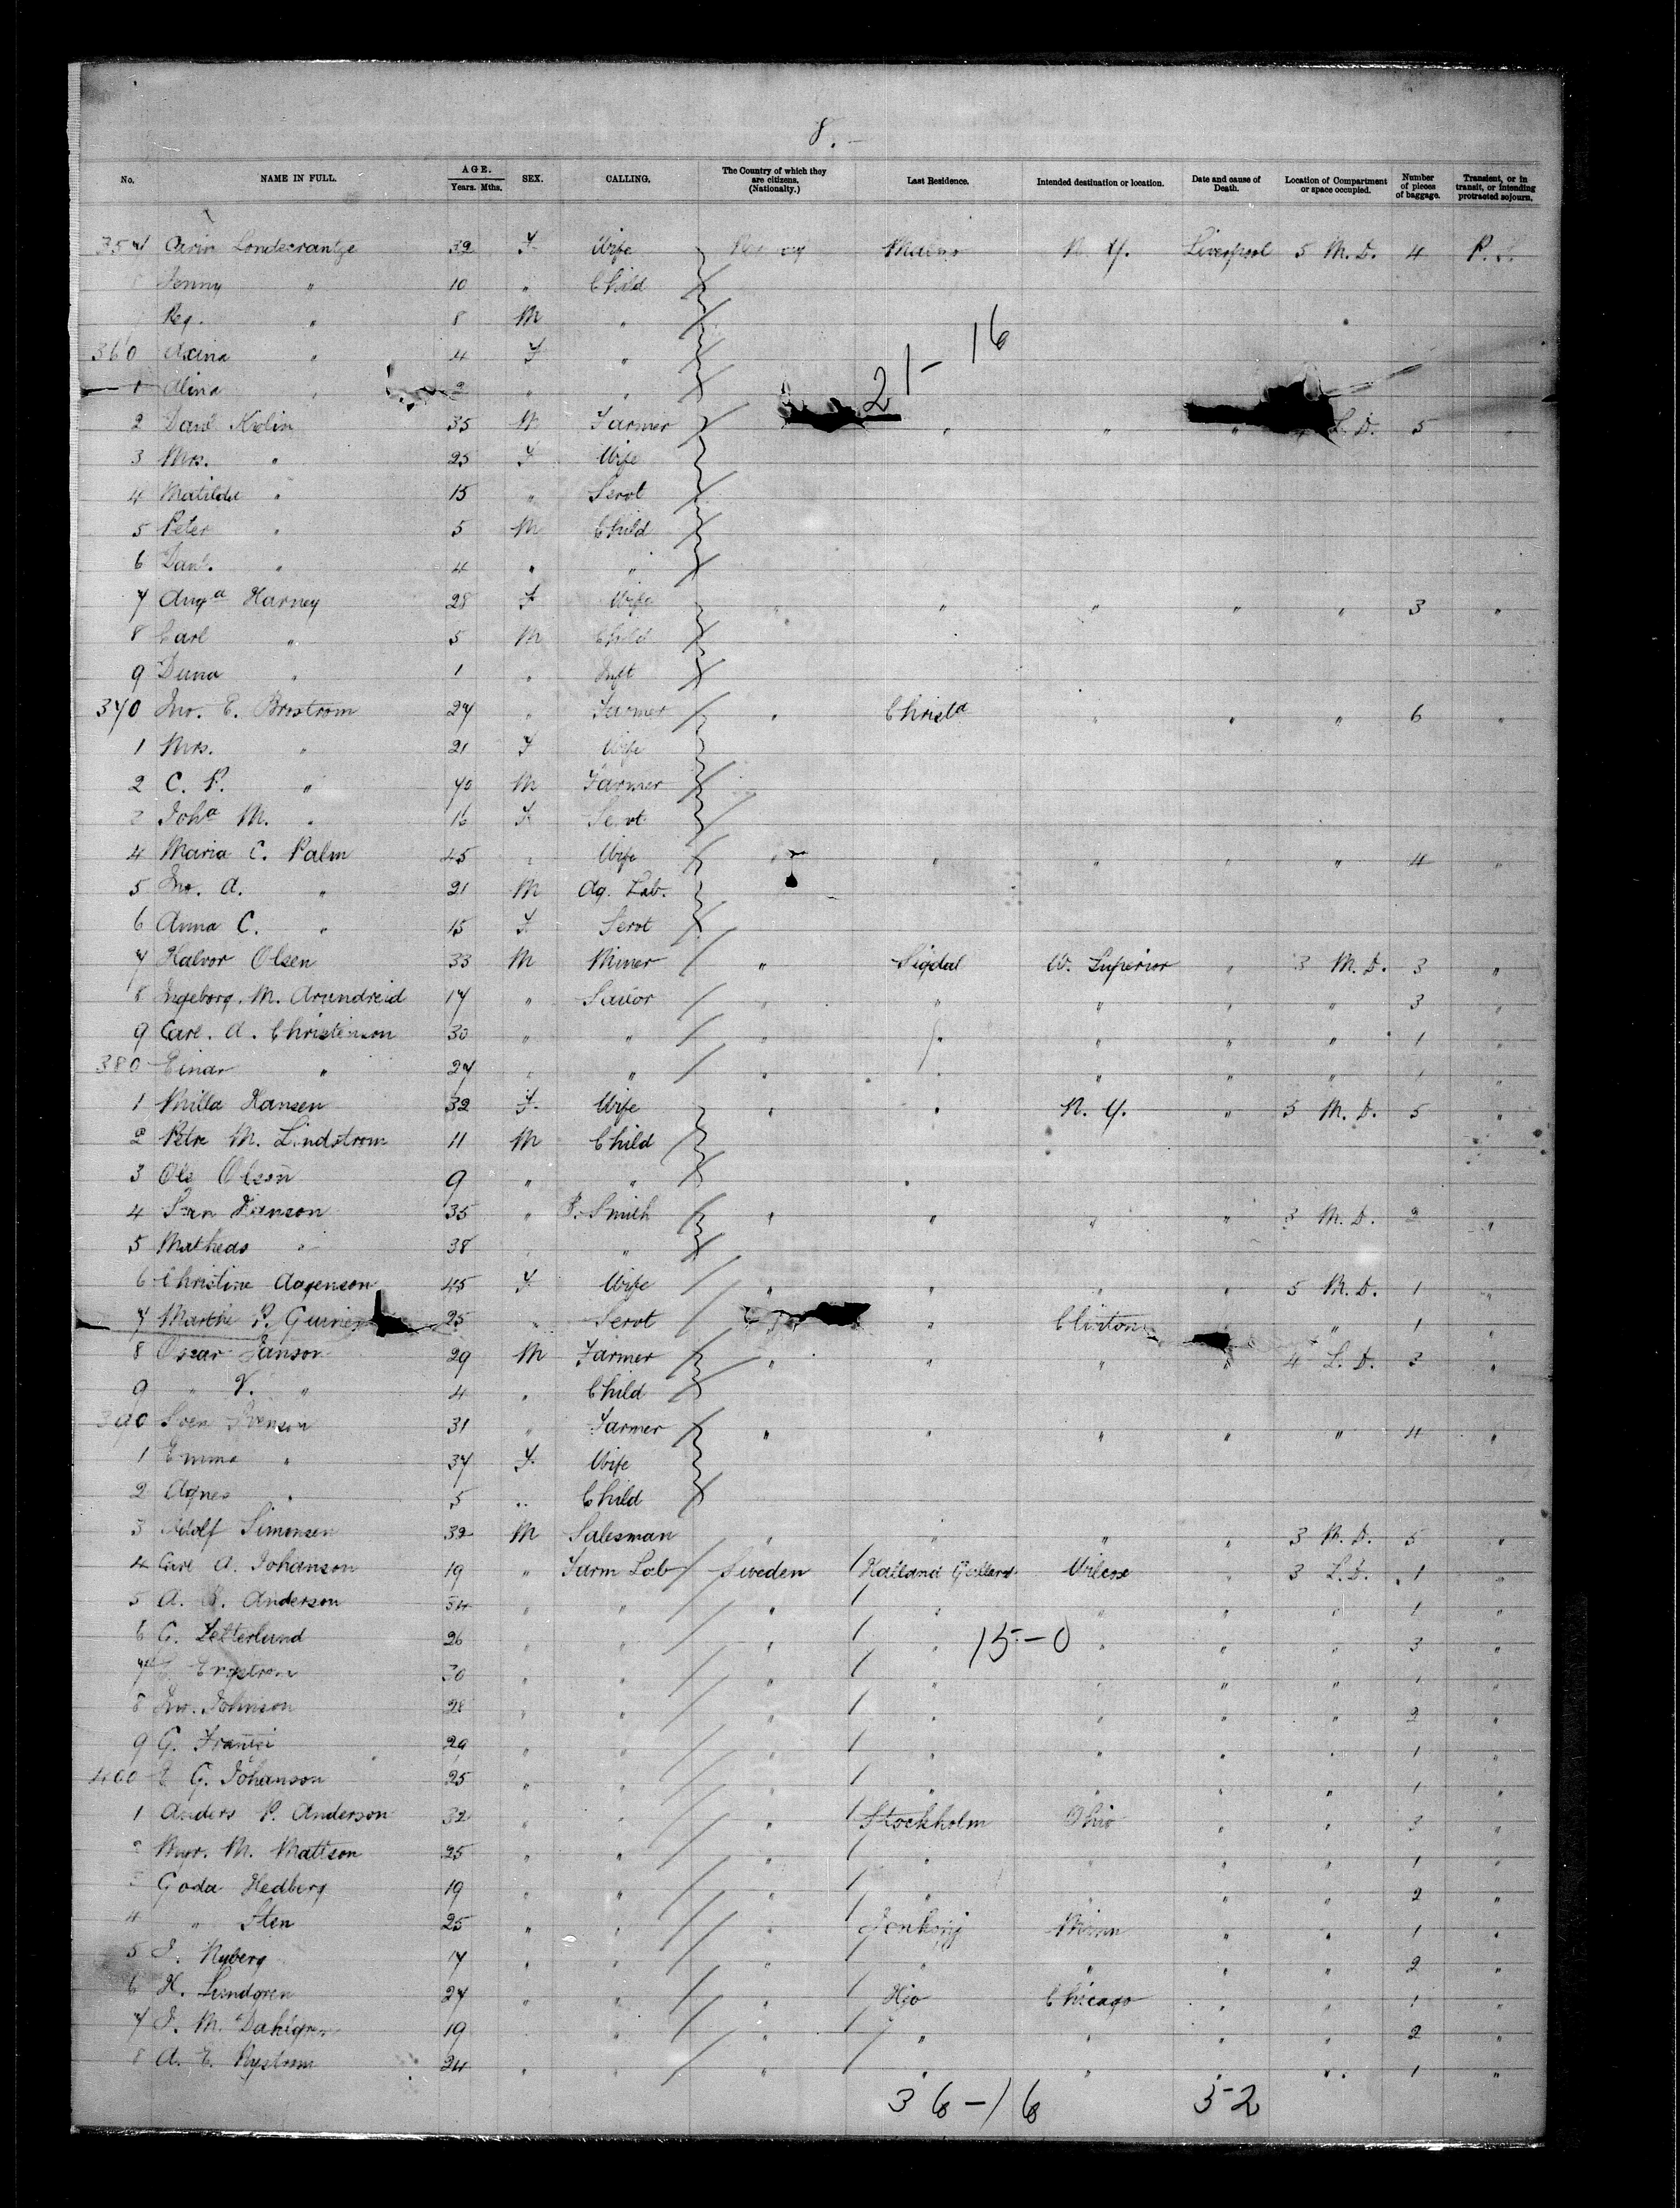 8.-
No. NAME IN FULL. AGE. Years. Mths. SEX. CALLING. The Country of which they are citizens. (Nationalty.) Last Residence. Intended destination or location. Date and cause of Death. Location of Compartment or space occupied. Number of pieces of baggage. Transient, or in transit, or intending protracted sojourn.
357 Carin Londecrantze 32 F. Wife Malmo N. Y. Liverpool 5 M. D. 4 P. S.
8 Jenny " 10 " Child
Reg. " 8 M "
360 Axina " 4 F "
21- 16
1 Alina " 2 " "
2 Danl Kidin 35 M Farmer " " " L. D. 5 "
3 Mrs. " 25 F Wife
4 Matilde " 15 " Servt
5 Peter " 5 M Child
6 Danl. " 4 " "
7 Auga Harney 28 F Wife " " " " " 3 "
8 Carl " 5 M Child
9 Duna " 1 " Inft
370 Jno. E. Brostrom 27 " Farmer " Christa " " " 6 "
1 Mrs. " 21 F Wife
2 C. P. " 70 M Farmer
3 Joha M. " 16 F. Servt
4 Maria C. Palm 45 " Wife " " " " " 4 "
5 Jno. A. " 21 M Ag. Lab.
6 Anna C. " 15 F. Servt
7 Halvor Olsen 33 M Miner " Sigdal W. Superior " 3 M. D. 3 "
8 Ingeborg. M. Arundreid 17 " Sailor " " " " " 3 "
9 Carl. A. Christenson 30 " " " " " " " 1 "
380 Einar " 27 " " " " " " " 1 "
1 Milla Hansen 32 F. Wife " " N. Y. " 5 M. D. 5 "
2 Petre M. Lindstrom 11 M Child
3 Ole Olson 9 " "
4 35 " B. Smith " " " " 3 M. D. 2 "
5 Matheds " 38 " "
6 Christine Aagenson 45 F. Wife " " " " 5 M. D. 1 "
7 Marthe P. 25 " Servt " Clinton " 1 "
8 Oscar Janson 29 M Farmer " " " " 4 L. D. 3 "
9 " V. " 4 " Child
390 Sven Svenson 31 " Farmer " " " " " 4 "
1 Emma " 37 F. Wife
2 Agnes " 5 " Child
3 Adolf Simonsen 32 M Salesman " " " " 3 M. D. 5 "
4 Carl A. Johanson 19 " Farm Lab Sweden Halland Wilcox " 3 L. D. 1 "
5 A. Anderson 34 " " " " " " " 1 "
6 G. Zetterlund 26 " " " " " " " 3 "
15-0
7 Engstrom 30 " " " " " " 1 "
8 Jno. Johnson 28 " " " " " " " 2 "
9 G. 29 " " " " " " " 1 "
400 E G. Johanson 25 " " " " " " " 1 "
1 Anders P. Anderson 32 " " " Stockholm Ohio " " 3 "
2 M. Mattson 25 " " " " " " " 1 "
3 Goda Hedberg 19 " " " " " " " 2 "
4 " Sten 25 " " " Minn " " 1 "
5 J. Nyberg 17 " " " " " " " 2 "
6 H. Lundgren 24 " " " Hjo Chicago " " 1 "
7 J. M. Dahlgren 19 " " " " " " 2 "
8 A. E. Nystrom 24 " " " " " " " 1 "
36-16 52